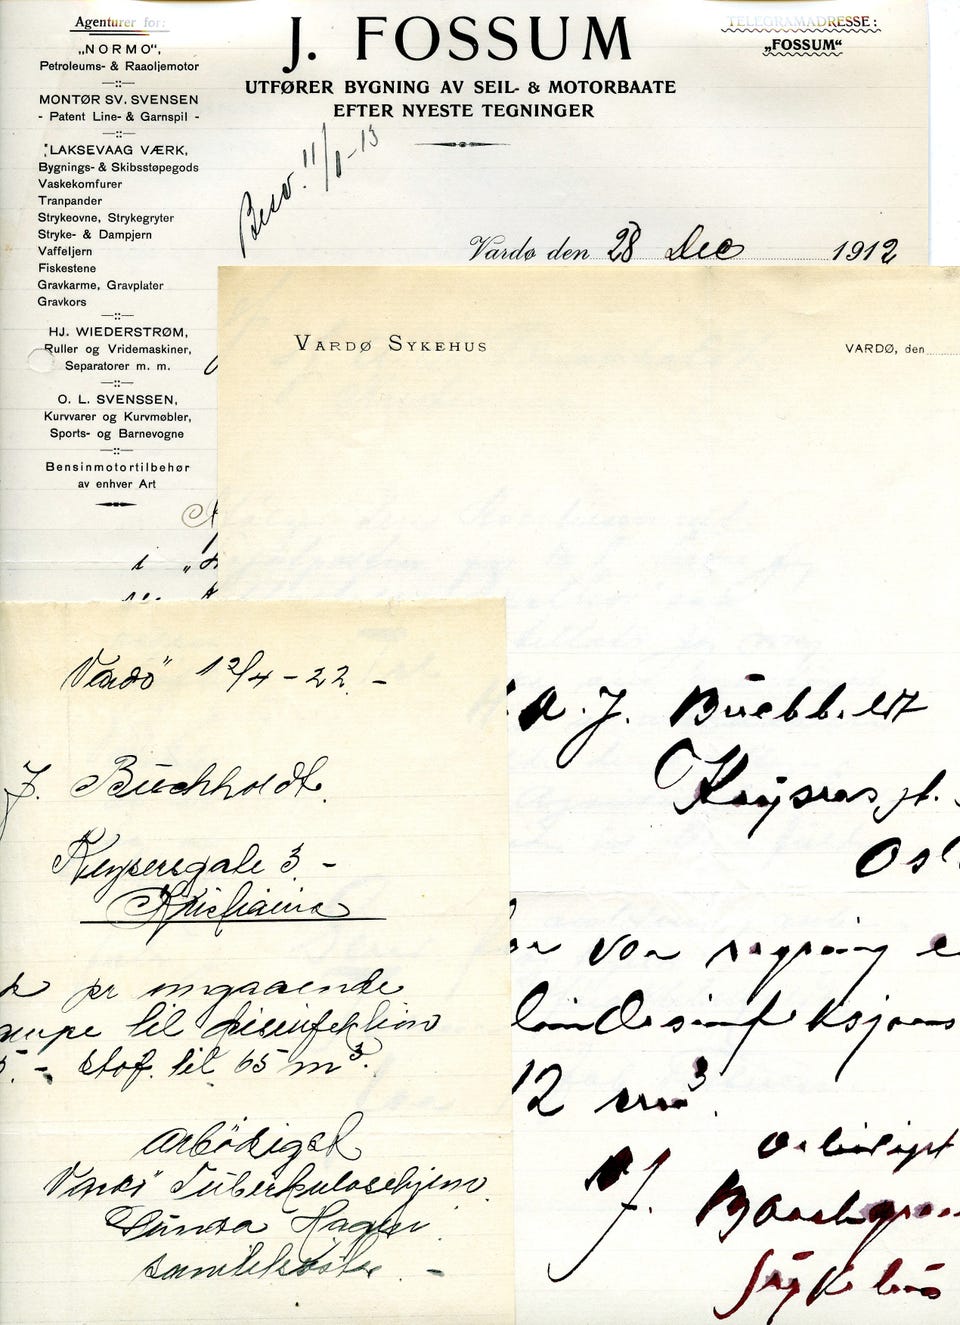 Agenturer for:
„NORMO“,
Petroleums- & Raaoljemotor
MONTØR SV. SVENSEN
- Patent Line- & Garnspil -
LAKSEVAAG VÆRK,
Bygnings- & Skibsstøpegods
Vaskekomfurer
Tranpander
Strykeovne, Strykegryter
Stryke- & Dampjern
Vaffeljern
Fiskestene
Gravkarme, Gravplater
Gravkors
HJ. WIEDERSTRØM,
Ruller og Vridemaskiner,
Separatorer m. m.
O. L. SVENSSEN,
Kurvvarer og Kurvmøbler,
Sports- og Barnevogne
Bensinmotortilbehør
av enhver Art
J. FOSSUM
UTFØRER BYGNING AV SEIL- & MOTORBAATE
EFTER NYESTE TEGNINGER
TELEGRAMADRESSE:
„FOSSUM“
Besv. 11/1-13
Vardø den 28 Dec 1912
VARDØ SYKEHUS
VARDØ, den
A. J. Buchholdt
Keysers gt.
Os
12 m³.
Vardö 12/4-22. -
J. Buchholdt.
Keysersgate 3 -
Kristiania
pr omgaaende
til disinfektion
5. - stof. til 65 m³.
Arbödigst
Vardö Tuberkulosehjem.
Hagen